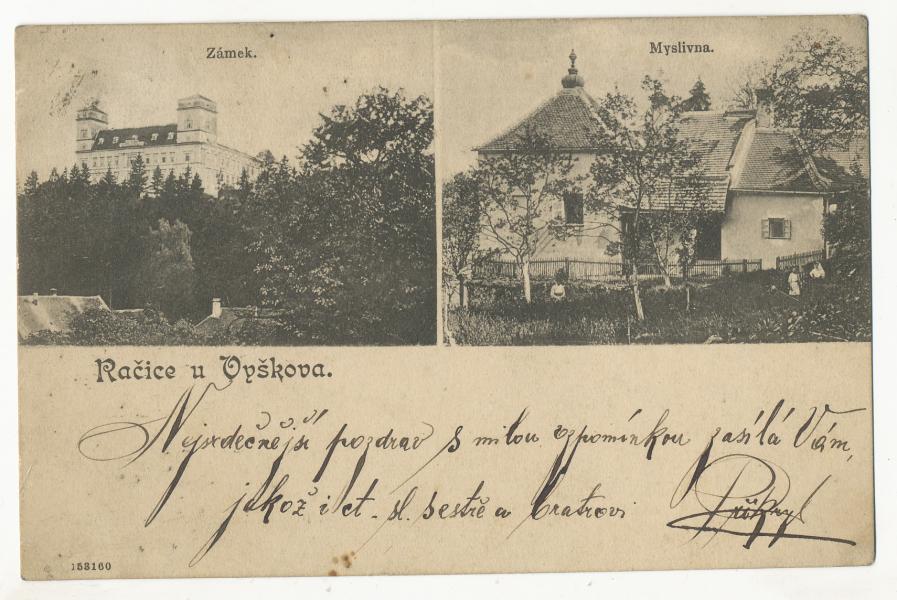 Zámek.
Myslivna.
Račice u Vyškova.
Nejsrdečnější pozdrav s milou vzpomínkou zasílá Vám,
jakož i ct. sl. sestře a bratrovi
153160